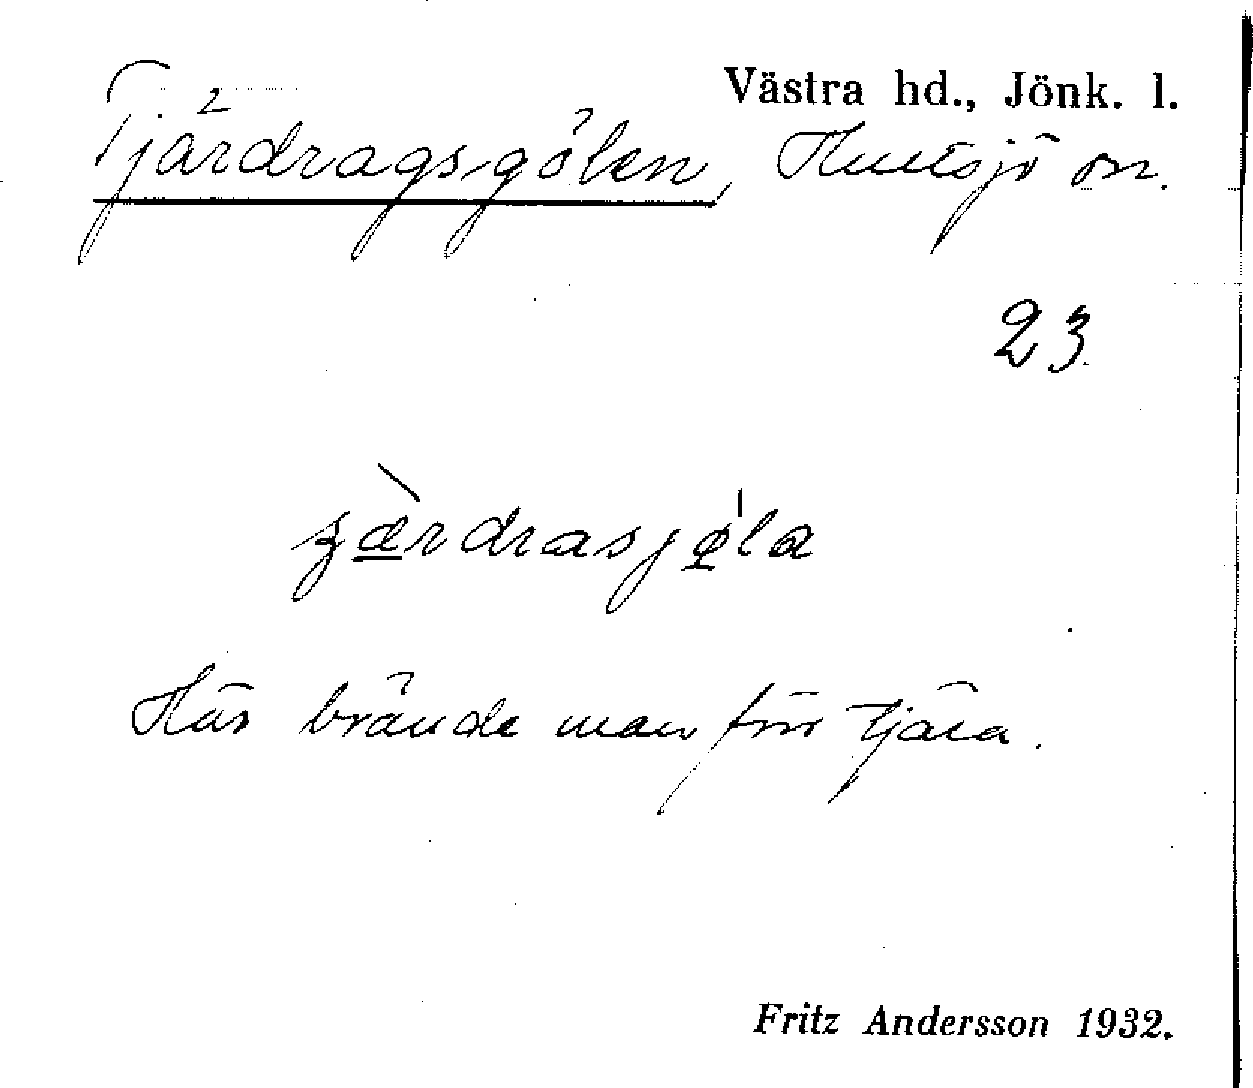 Västra hd., Jönk. l.
Tjärdragsgölen, Hultsjö sn.
23
Här brände man förr tjära.
Fritz Andersson 1932.